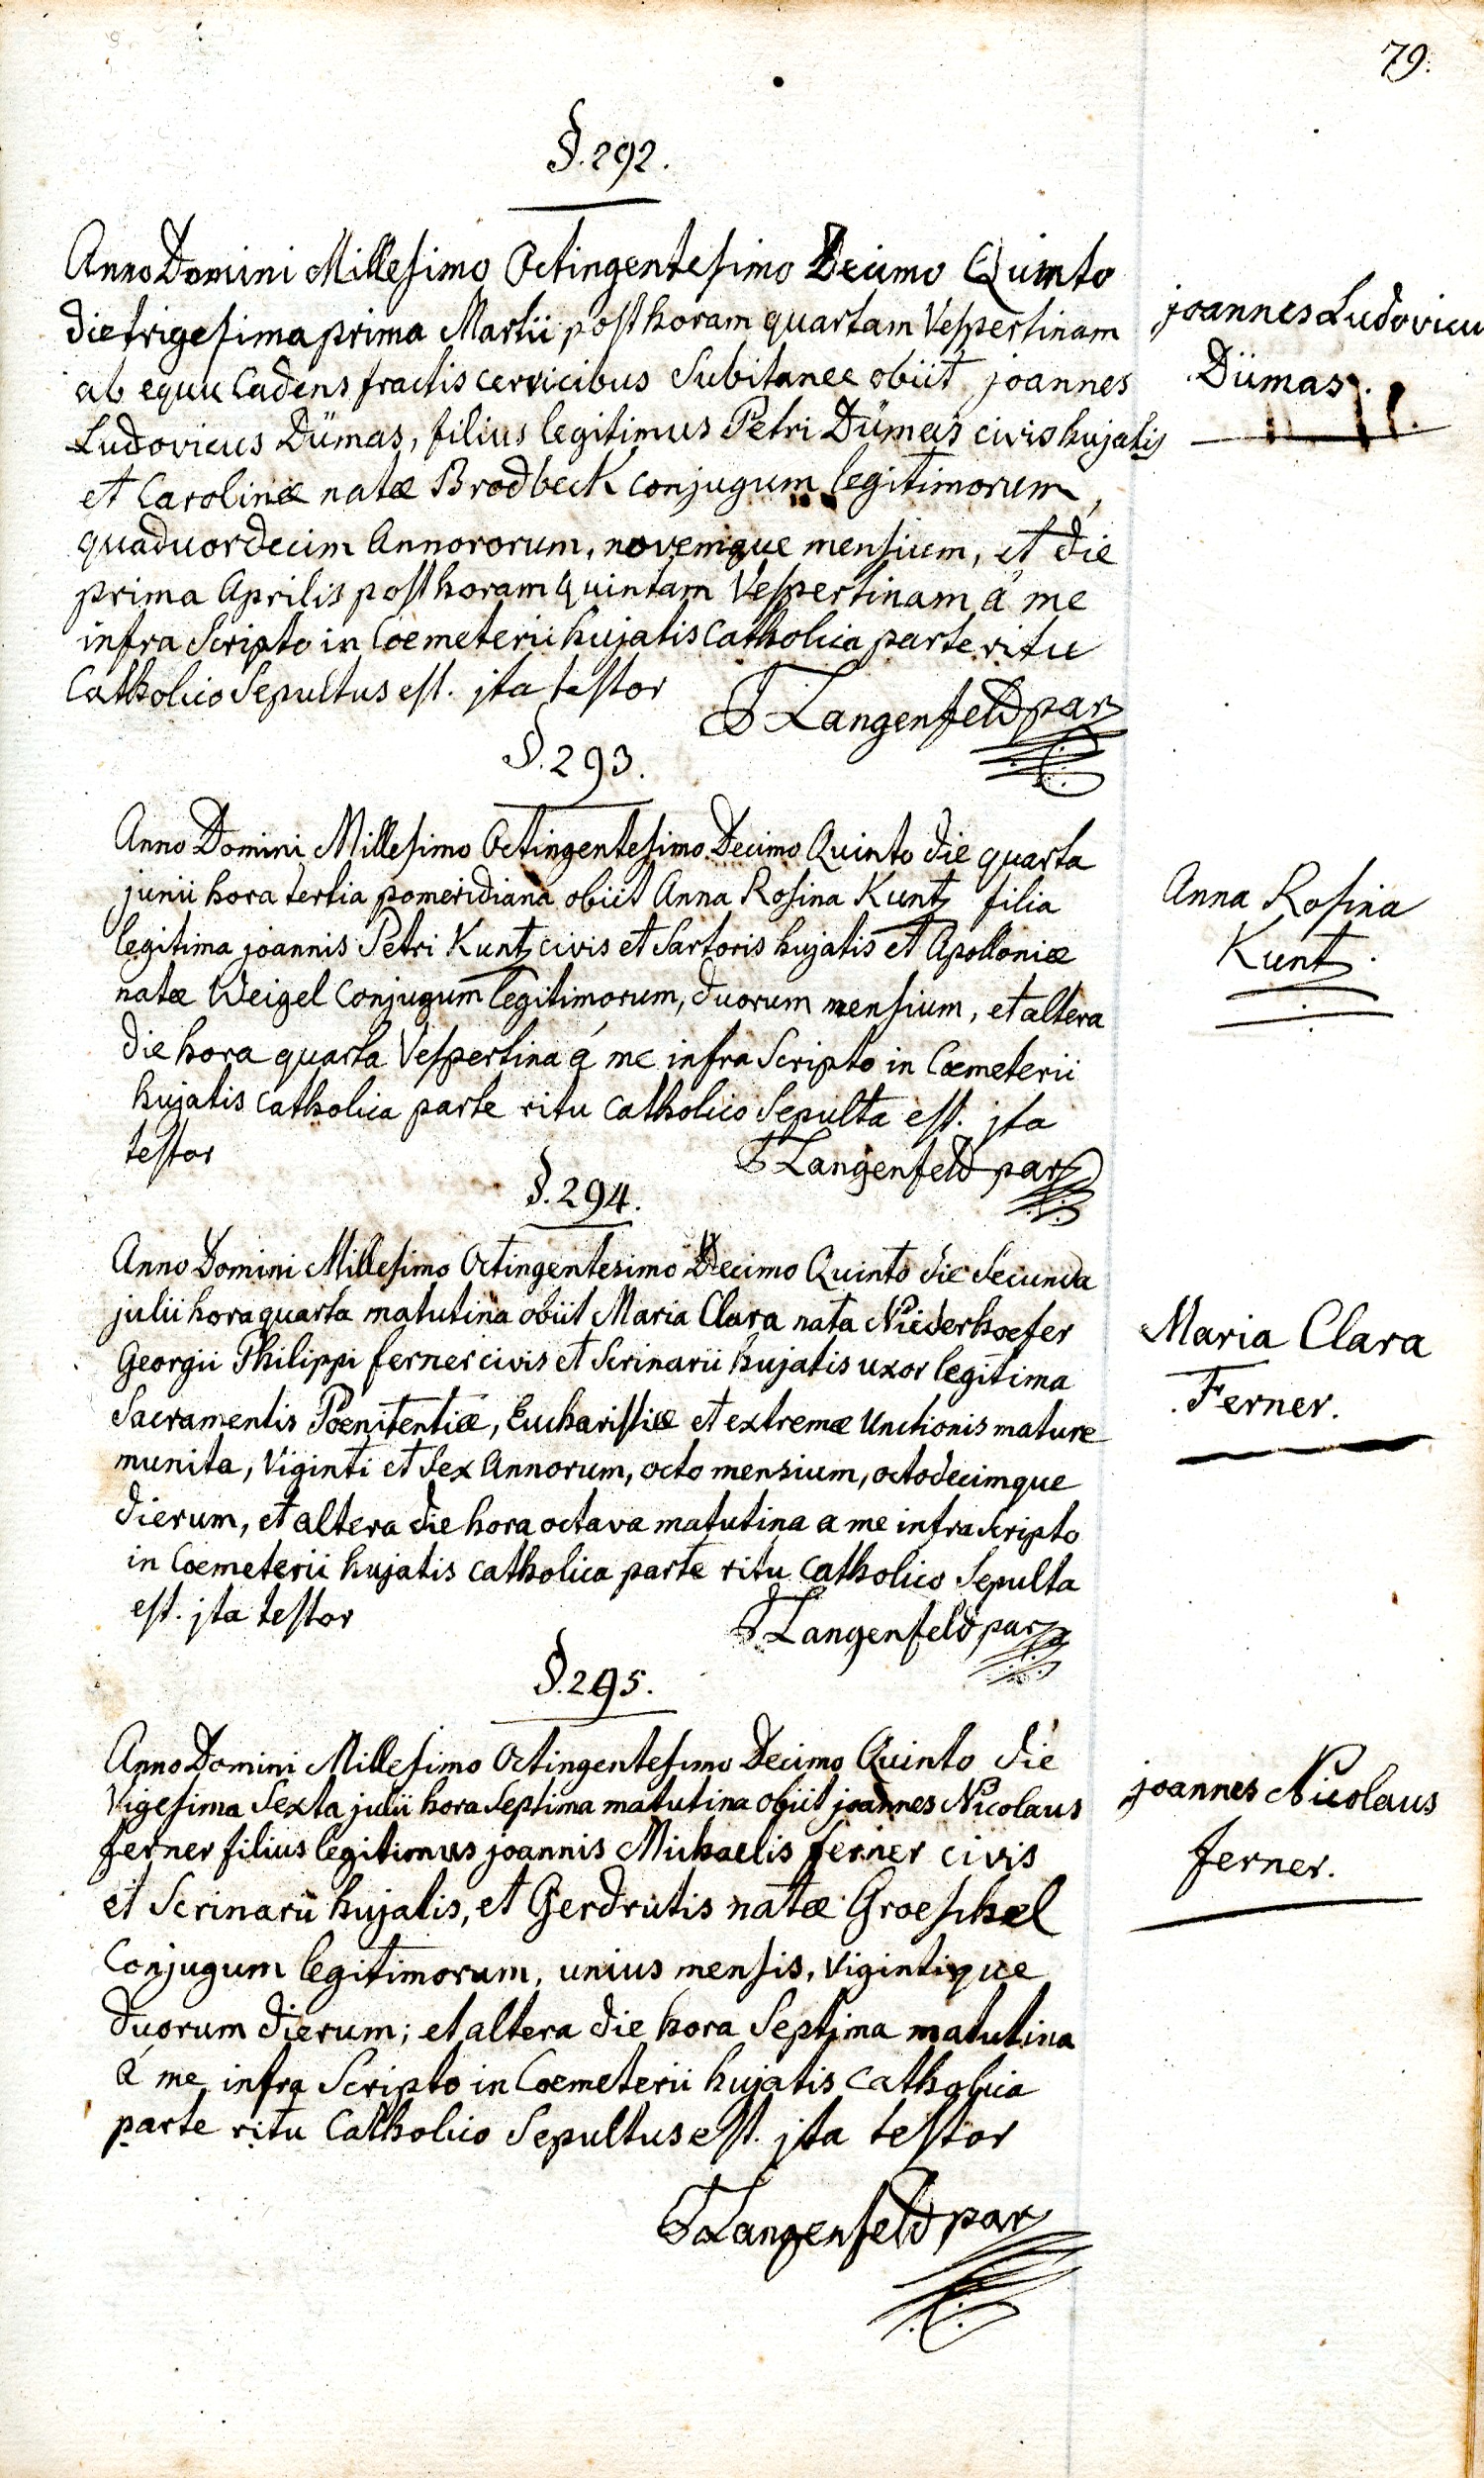 79.
§. 292.
Anno Domini Millesimo Octingentesimo Decimo Quinto
die trigesima prima Martii post horam quartam Vespertinam
ab equu Cadens fractis cervicibus Subitanee obiit joannes
Ludovicus Dümas, filius legitimus Petri Dümas civis hujatis
et Carolinæ natæ Brodbeck conjugum legitimorum,
quaduordecim Annororum, novemque mensium, et die
prima Aprilis post horam quintam Vespertinam á me
infra Scripto in Coemeterii hujatis Catholica parte ritu
Catholico Sepultus est. jta testor
Langenfeld par
joannes Ludovicu
Dümas.
§. 293.
Anno Domini Millesimo Octingentesimo Decimo Quinto die quarta
junii hora tertia pomeridiana obiit Anna Rosina Kuntz filia
legitima joannis Petri Kuntz civis et Sartoris hujatis et Apolloniæ
natæ Weigel Conjugum legitimorum, duorum mensium, et altera
die hora quarta Vespertina á me infra Scripto in Coemeterii
hujatis catholica parte ritu catholico Sepulta est. jta
testor
Langenfeld par
Anna Rosina
Kuntz.
§. 294.
Anno Domini Millesimo Octingentesimo Decimo Quinto die Secunda
julii hora quarta matutina obiit Maria Clara nata Niederhoefer
Georgii Philippi ferner civis et Scrinarii hujatis uxor legitima
Sacramentis Poenitentiæ, Eucharistiæ et extremæ Unctionis mature
munita, Viginti et Sex Annorum, octo mensium, octodecimque
dierum, et altera die hora octava matutina a me infra Scripto
in Coemeterii hujatis catholica parte ritu catholico Sepulta
est. jta testor
Langenfeld par
Maria Clara
Ferner.
§. 295.
Anno Domini Millesimo Octingentesimo Decimo Quinto die
Vigesima Sexta julii hora Septima matutina obiit joannes Nicolaus
ferner filius legitimus joannis Michaelis ferner civis
et Scrinarii hujatis, et Gerdrutis natæ Groeschel
Conjugum legitimorum, unius mensis, vigintique
duorum dierum; et altera die hora Septima matutina
á me infra Scripto in Coemeterii hujatis catholica
parte ritu Catholico Sepultus est. jta testor
Langenfeld par
joannes Nicolaus
ferner.